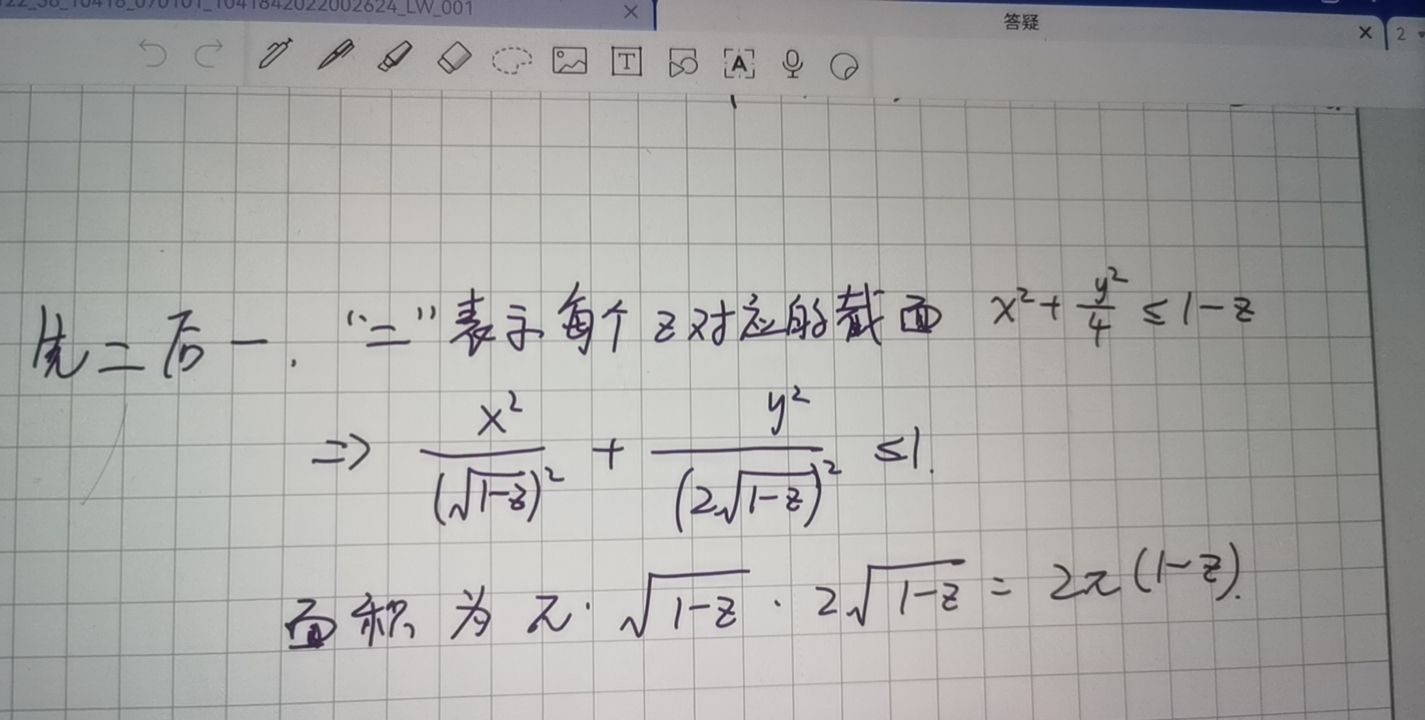 22_38_10418_070101_1041842022002624_LW_001
答疑
2
先二后一. “二”表示每个z对应的截面 x²+y²/4 ≤ 1-z
=> x²/(√(1-z))² + y²/(2√(1-z))² ≤ 1.
面积为 π·√(1-z)·2√(1-z) = 2π(1-z).